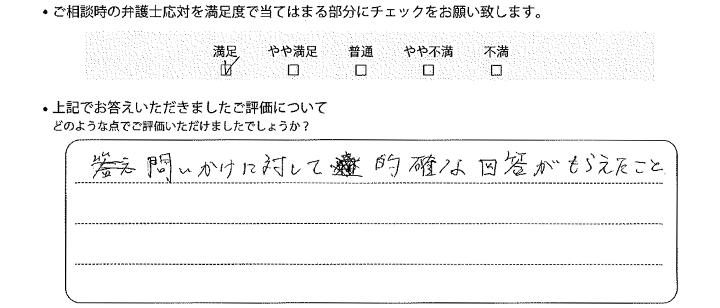 • ご相談時の弁護士応対を満足度で当てはまる部分にチェックをお願い致します。
満足 やや満足 普通 やや不満 不満
☑ □ □ □ □
• 上記でお答えいただきましたご評価について
どのような点でご評価いただけましたでしょうか？
答え 問いかけに対して 的確な回答がもらえたこと